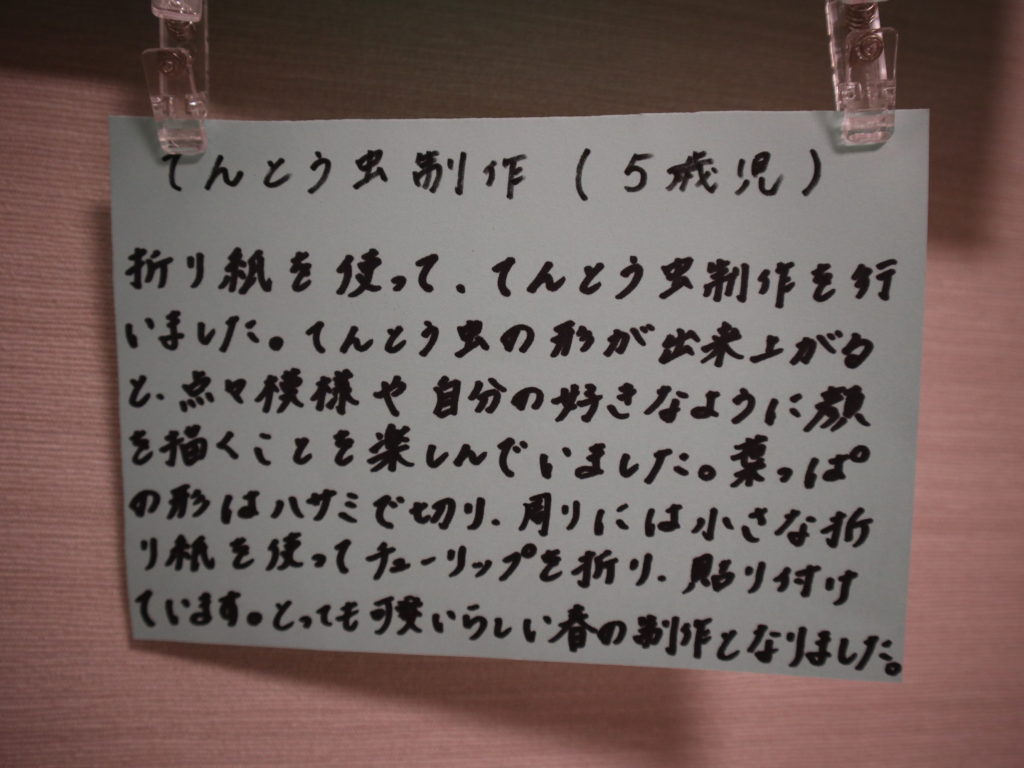 てんとう虫制作(5歳児)
折り紙を使って、てんとう虫制作を行
いました。てんとう虫の形が出来上がる
と、点々模様や自分の好きなように顔
を描くことを楽しんでいました。葉っぱ
の形はハサミで切り、周りには小さな折
り紙を使ってチューリップを折り、貼り付け
ています。とっても可愛いらしい春の制作となりました。